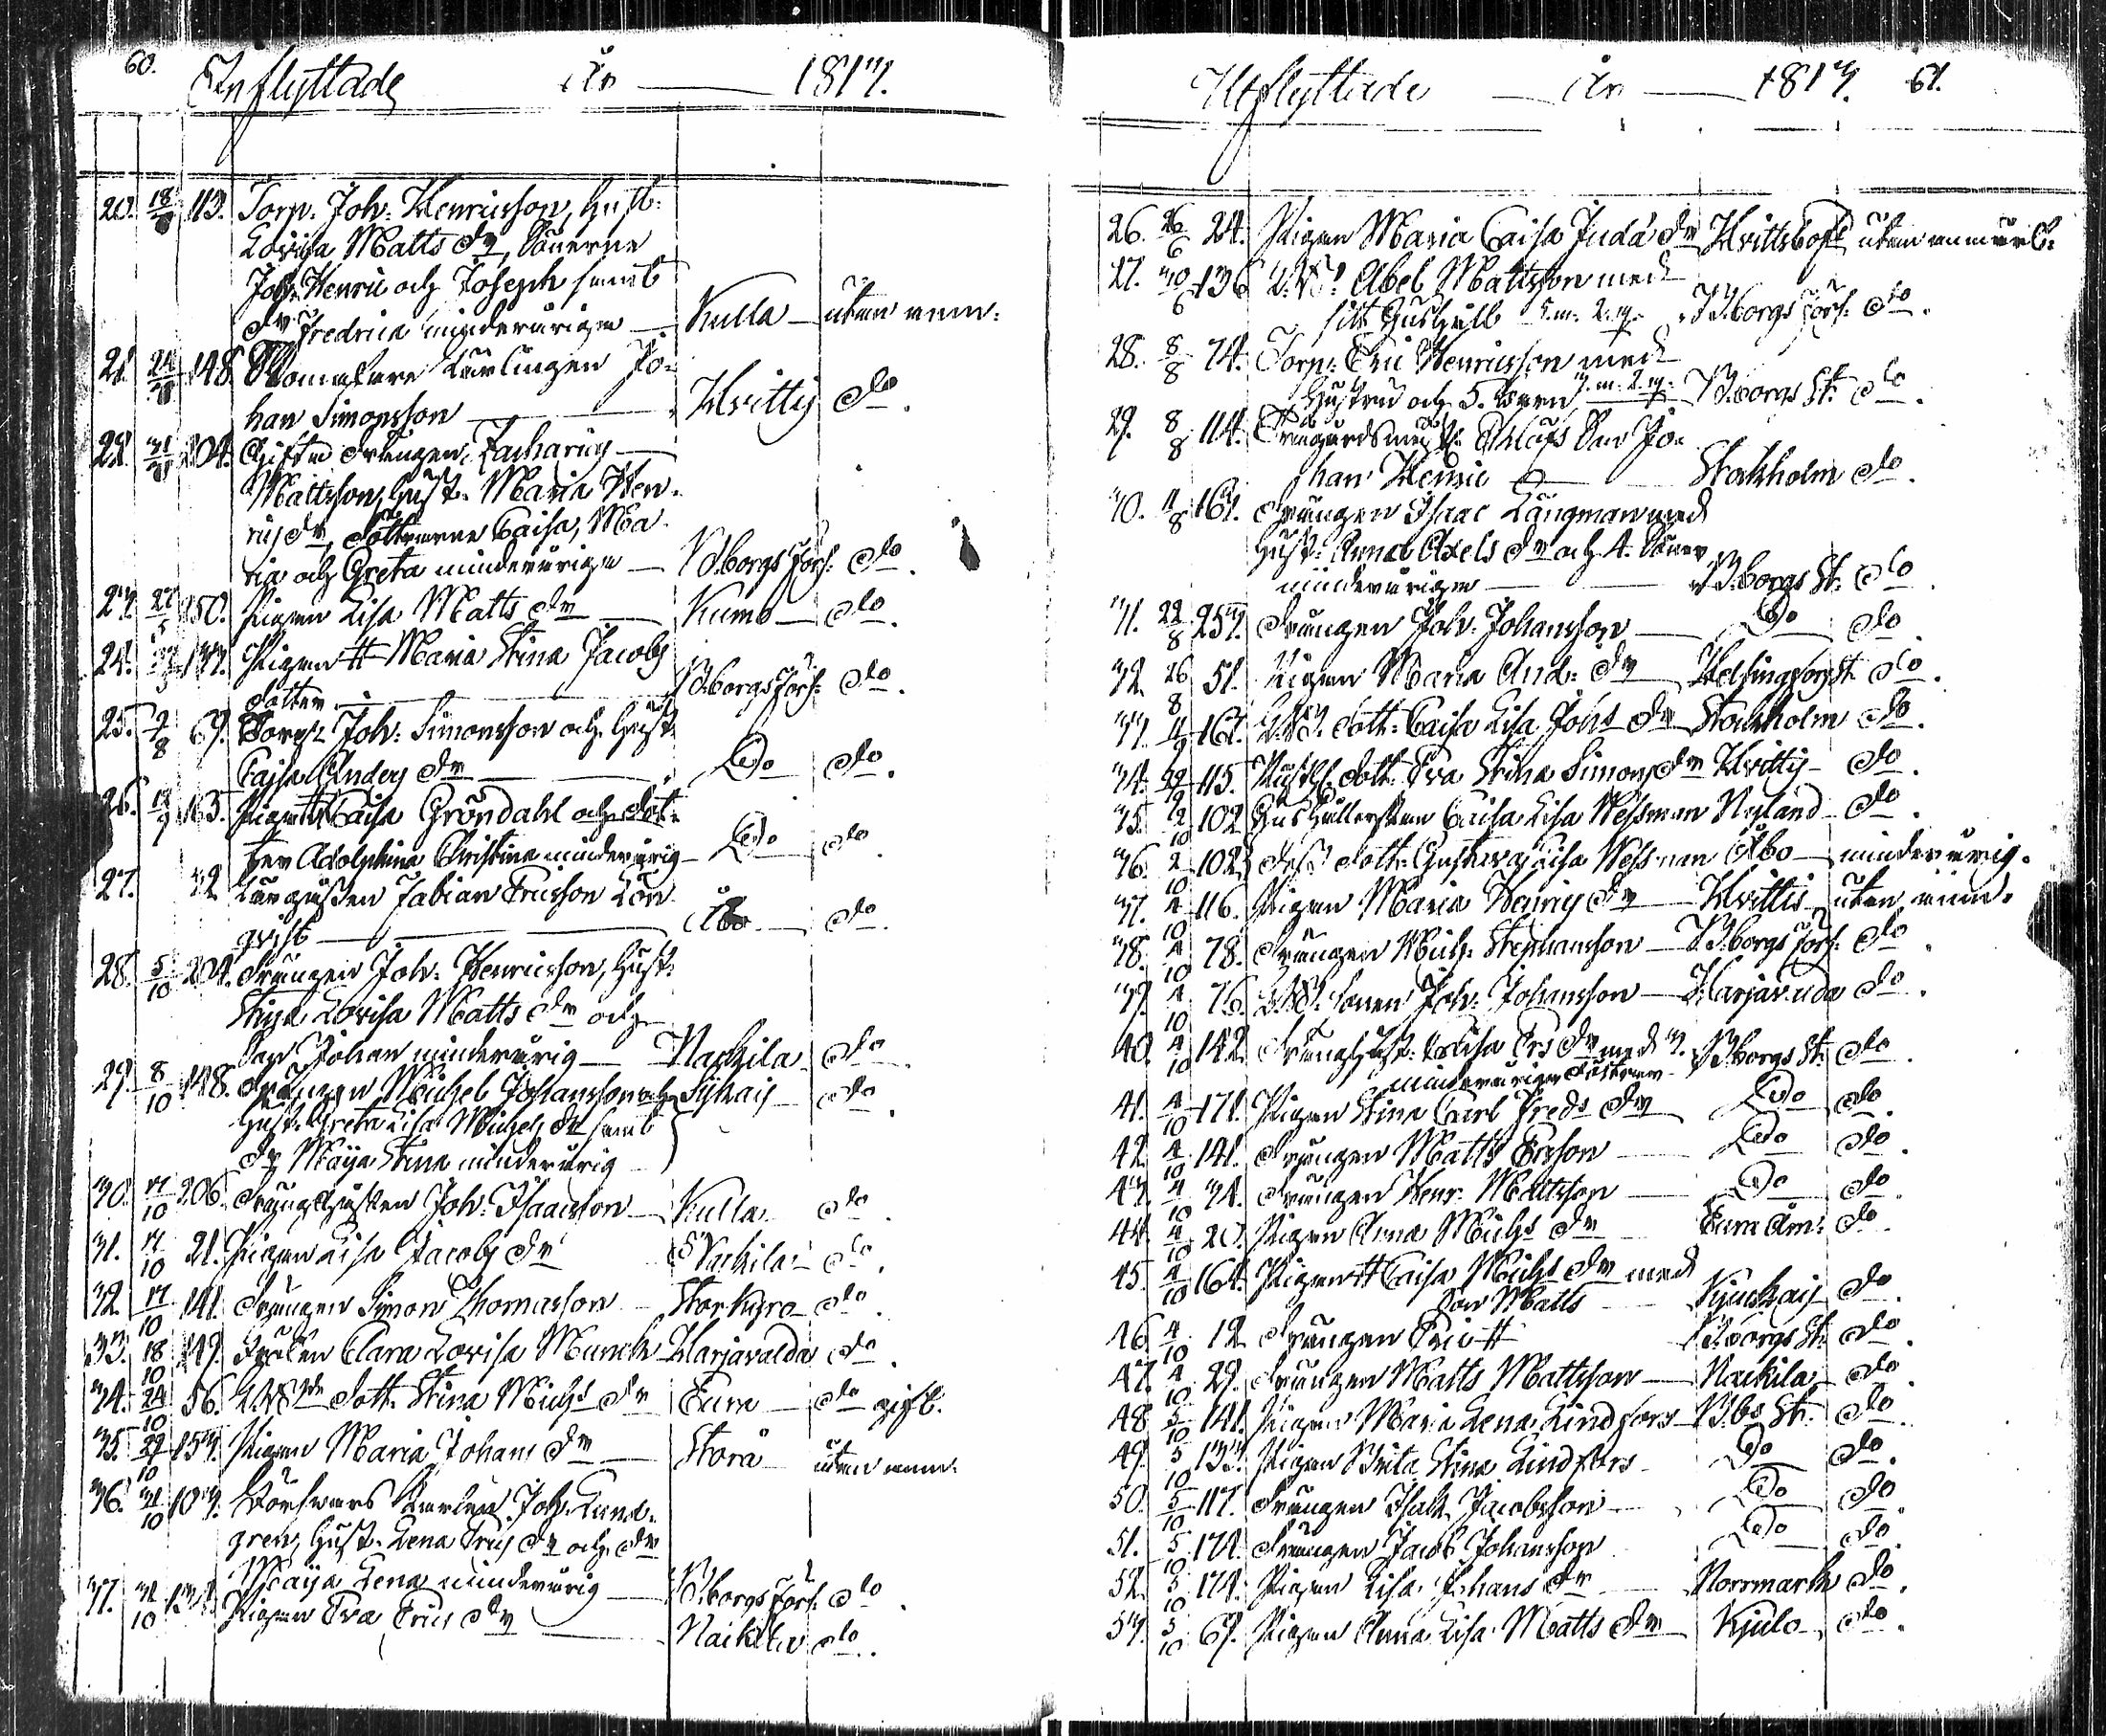 60.
Inflyttade År 1817.
20. 18/8 113. Torp. Joh: Henricsson, Hust:
Lovisa Matts dr, Sönerne
Joh: Henric och Joseph samt
dr Fredrica minderårige Kulla utan anm:
21. 148. Kärlingen Jo=
han Simonsson Hvittis do.
22. 204. Gifta Drängen Zacharias
Mattsson, Hust: Maria Hen=
rics dr, döttrarne Caisa, Ma=
ria och Greta minderårige Bborgs förs: do.
23. 150. Pigan Lisa Matts dr Kumo do.
24. Pigan Maria Stina Jacobs
dotter Bborgs förs: do.
25. 2/8 69. Torp: Joh: Simonsson och Hust:
Caisa Anders dr Do do.
26. 163. Pigan Caisa Gröndahl och dot=
ter Adolphina Christina minderårig Do do
27. 42 Fabian Ericsson Lön=
qvist Åbo do.
28. 5/10 204. Drängen Joh: Henricsson, Hust:
Stina Lovisa Matts dr och
Son Johan minderårig Nackila do
29. 8/10 148. Drängen Michel Johansson och do
Hust: Greta Lisa Michels dr samt
dr Maija Stina minderårig
30. 17/10 206. Joh: Isaacsson Kulla do.
31. 17/10 21. Pigan Lisa Jacobs dr Nackila do.
32. 17/10 141. Drängen Simon Thomasson Storkyro do.
33. 18/10 119. Fröken Clara Lovisa Munck Harjavalda do.
34. 24/10 56. dott: Stina Michs dr Eura do gift.
35. 29/10 153. Pigan Maria Johans dr Storå utan anm:
36. 31/10 103. Försvars Karlen Joh: Lund=
gren, Hust: Lena Erics dr och dr
Maija Lena minderårig Bborgs förs: do.
37. 31/10 Pigan Eva Erics dr Nackila do.
Utflyttade År 1817. 61.
26. 26/6 24. Pigan Maria Caisa Juda dr Hvittisbofj utan anmärk:
27. 30/6 136 Abel Mattsson med
sitt Hushåll 5. m. 2. q. Bborgs förs: do.
28. 8/8 74. Torp: Eric Henricsson med
Hustru och 5. barn 3. m. 2. q. Bborgs St: do.
29. 8/8 114. Son Jo=
han Henric Stockholm do.
30. 11/8 161. Drängen Isaac Långman med
Hust: Anna Axels dr och 4. Söner
minderårige Bborgs St: do
31. 22/8 253. Drängen Joh: Johansson Do do
32. 26/8 51. Pigan Maria And: dr Helsingfors St do.
33. 11/9 161. dott: Caisa Lisa Johs dr Stockholm do.
34. 22/9 115. dott: Eva Stina Simons dr Hvittis do.
35. 2/10 102 Hushållerskan Caisa Lisa Wessman Nyland do.
36. 2/10 102 dess dott: Gustava Lisa Wessman Åbo minderårig.
37. 4/10 116. Pigan Maria Henrics dr Hvittis utan anm:
38. 4/10 78. Drängen Mich: Stephansson Bborgs förs: do
39. 4/10 76. Sonen Joh: Johansson Harjavalda do.
40. 4/10 142. Lisa Ers dr med 3. Bborgs St: do
minderårige döttrar
41. 4/10 171. Pigan Stina Carl Freds dr Do do
42. 4/10 141. Drängen Matts Ersson Do do.
43. 4/10 34. Drängen Henr: Mattsson Do do
44. 4/10 20. Pigan Anna Michs dr Eura Åm: do.
45. 4/10 164. Pigan Caisa Michs dr med
Son Matts do
46 4/10 12 Drängen Eric Bborgs St: do
47. 4/10 29. Drängen Matts Mattsson Nackila do.
48 5/10 141. Pigan Maria Lena Lindfors Bbs St: do.
49. 5/10 133. Pigan Brita Stina Lindfors Do do.
50. 5/10 117. Drängen Isak Jacobsson Do do
51. 5/10 174. Drängen Jacob Johansson Do do
52. 5/10 174. Pigan Lisa Johans dr Norrmark do.
53. 5/10 69. Pigan Anna Lisa Matts dr Kjulo do.